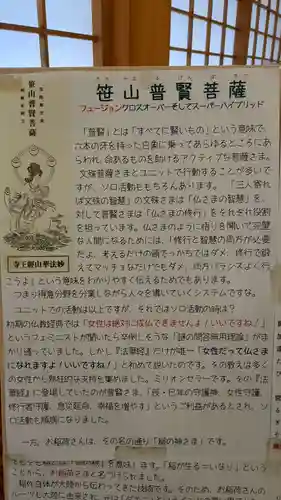 笹山普賢菩薩
笹山普賢菩薩
フュージョンクロスオーバーそしてスーパーハイブリッド
「普賢」とは「すべてに賢いもの」という意味で、
六本の牙を持った白象に乗ってあらゆるところにあ
らわれ、命あるものを助けるアクティブな菩薩さま。
文殊菩薩さまとユニットで行動することが多いで
すが、ソロ活動ももちろんあります。 「三人寄れ
ば文殊の智慧」の文殊さまは「仏さまの智慧」を、
対して普賢さまは「仏さまの修行」をそれぞれ役割
を担っています。仏さまのように悟りを開いて完璧
な人間になるためには、「修行と智慧の両方が必要
だよ、考えるだけの頭でっかちではダメ、修行で鍛
えてマッチョなだけでもダメ、両方バランスよく行
こうよ」という意味をわかりやすく伝えるためでもあります。
つまり得意分野を分業しながら人々を導いていくシステムですな。
ユニットでの活動は以上ですが、ではソロ活動の時は？
初期の仏教経典では「女性は絶対に成仏できませんよ！いいですね！」
というフェミニストが聞いたら卒倒しそうな「謎の問答無用理論」がま
かり通っていました。しかし『法華経』だけが唯一「女性だって仏さま
になれますよ！いいですね！」と初めて説いたのです。その教えは多く
の女性から熱狂的な支持を集めました。ミリオンセラーです。その『法
華経』に登場していたのが普賢さま。「辰・巳年の守護神、女性守護、
修行者守護、息災延命、幸福を増やす」というご利益があるとされ、ソ
ロ活動も順風になりました。
寺王経山華法妙
一方、お稲荷さんは、その名の通り「稲の神さま」です。
を意味します。「稲が生る＝いなり」という
ことから、お稲荷さまと名づけられました。
稲作自体が大陸から伝わってきた技術です。そのため、お稲荷さんの